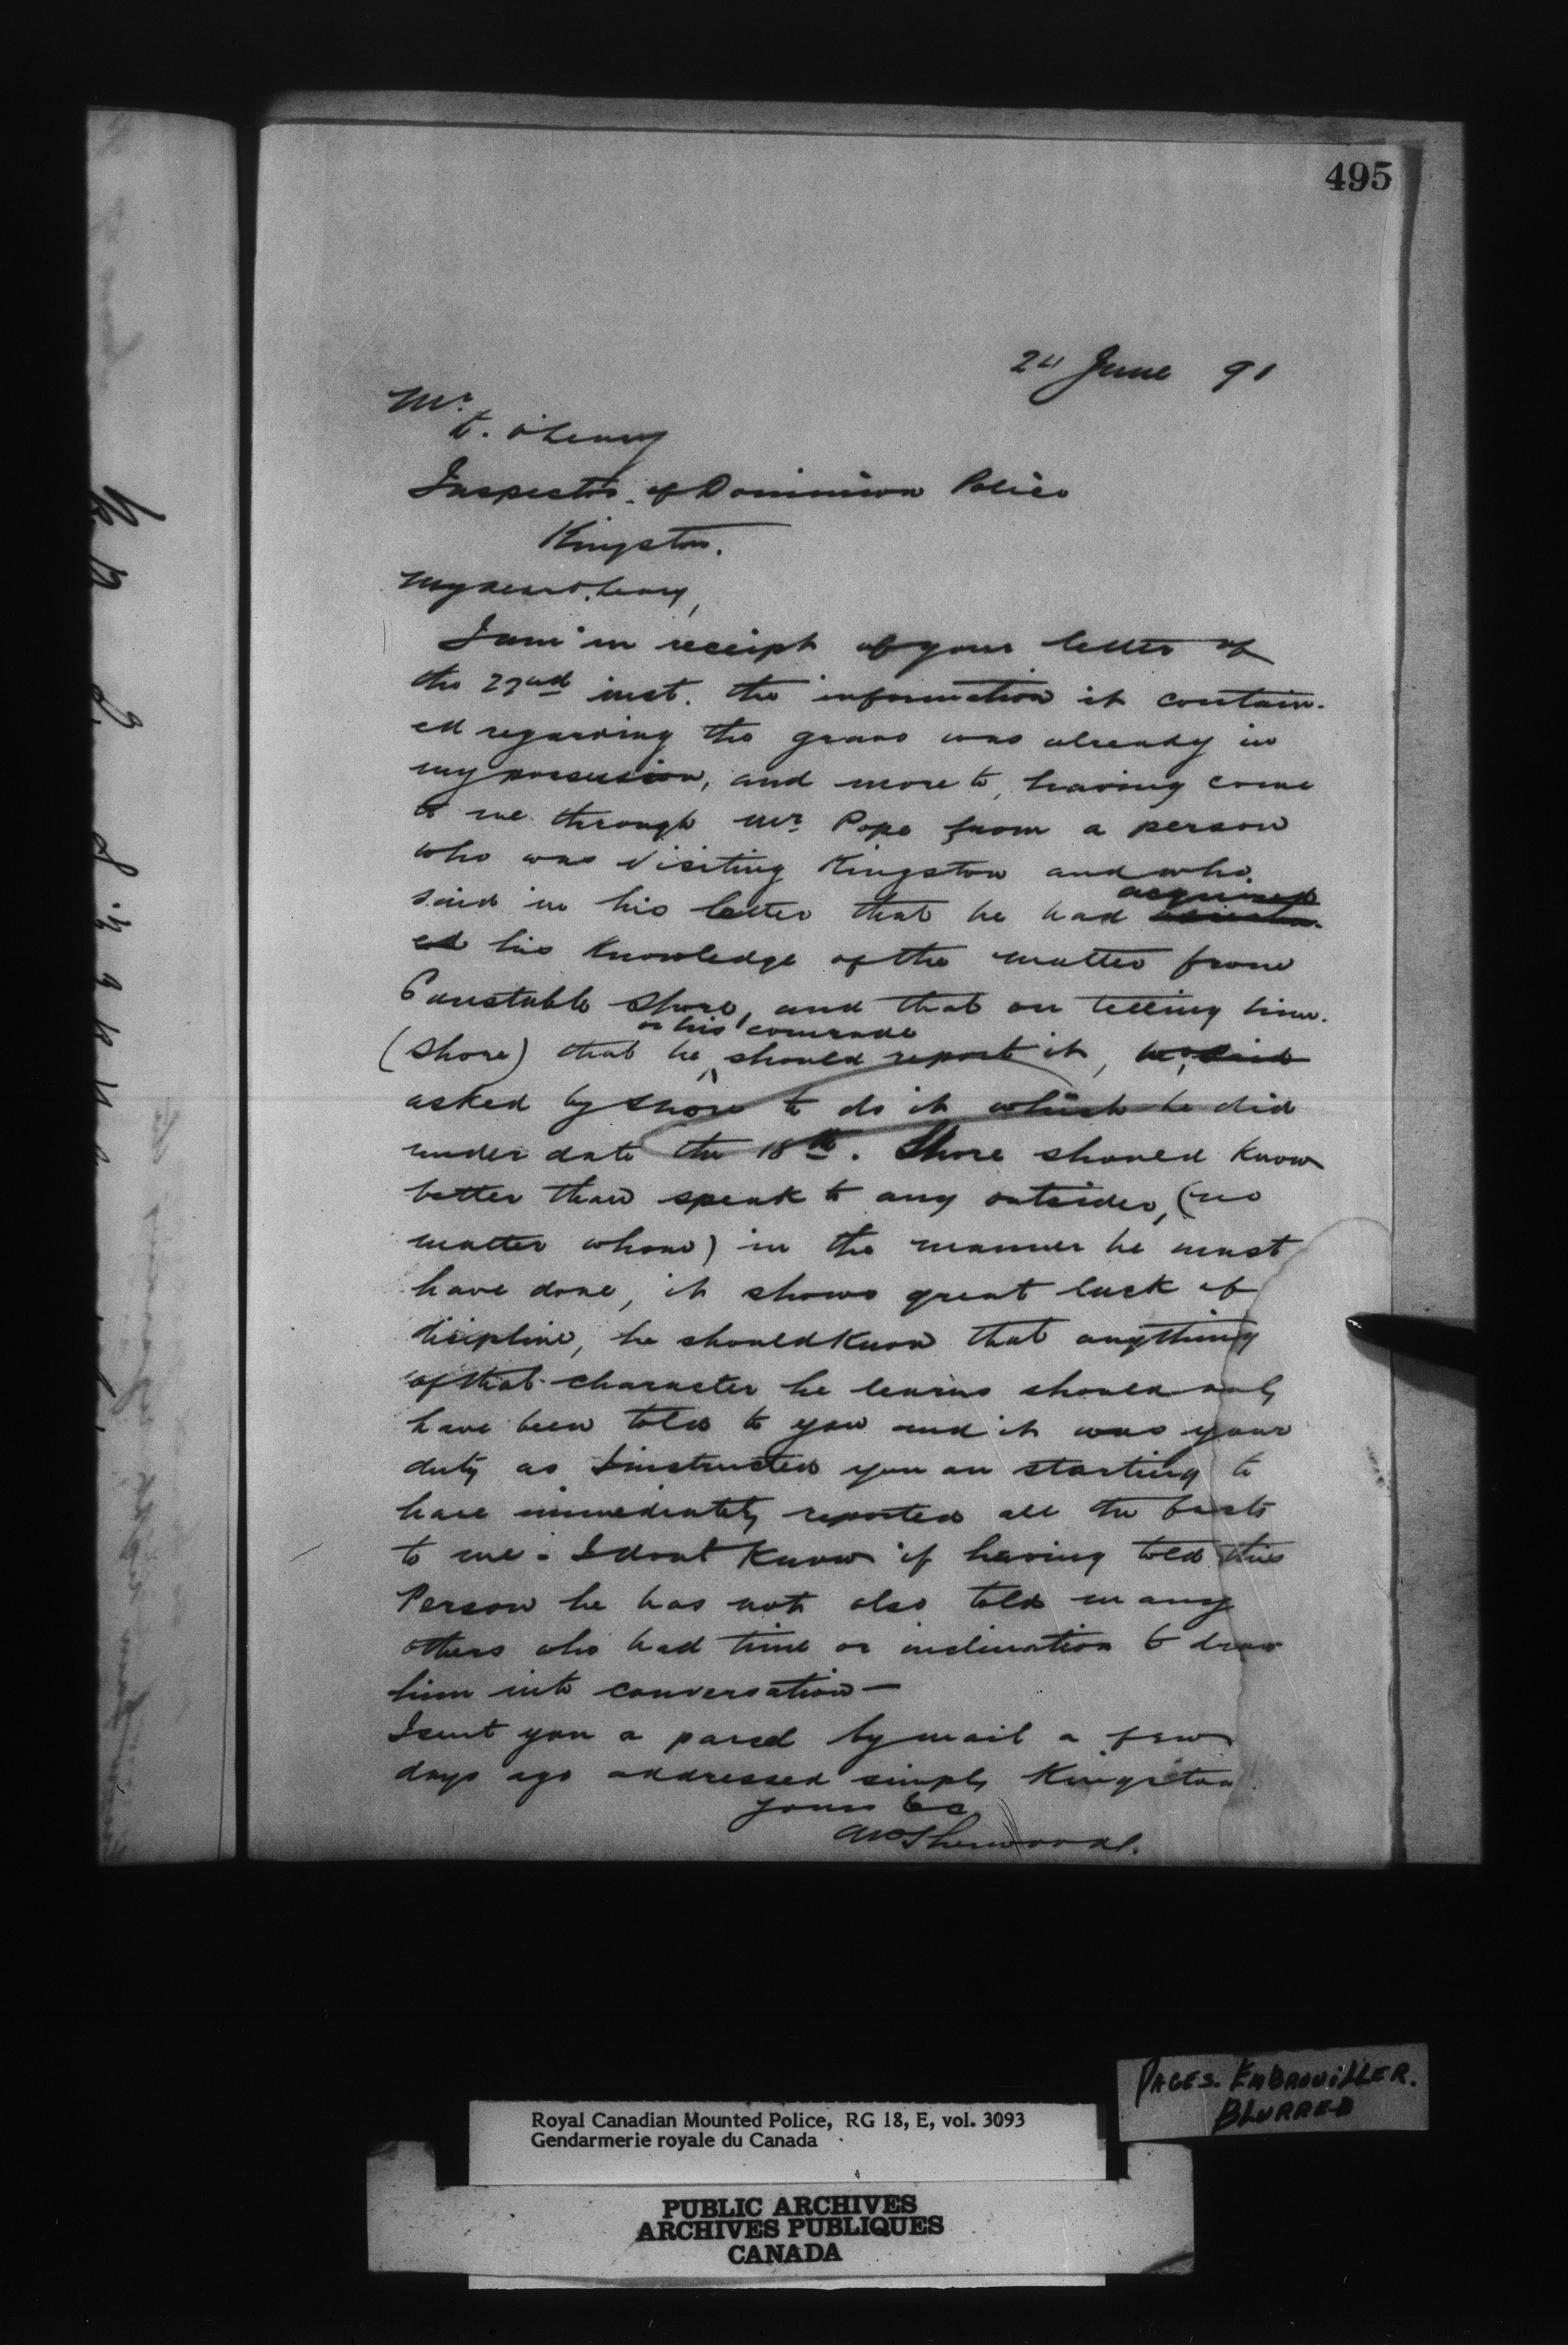 495
24 June 91
Mr.
D. O'Leary
Inspector of Dominion Police
Kingston.
My dear O'Leary,
I am in receipt of your letter of
the 22nd inst. the information it contain-
ed regarding the grave was already in
my possession, and more to, having come
to me through Mr. Pope from a person
who was visiting Kingston and who
said in his letter that he had acquired
ed his knowledge of the matter from
Constable Shore, and that on telling him
or his comrade
(Shore) that he should report it, he, said
asked by Shore to do it which he did
under date the 18th. Shore should know
better than speak to any outsider, (no
matter whom) in the manner he must
have done, it shows great lack of
disipline, he should know that anything
of that character he learns should only
have been told to you and it was your
duty as I instructed you on starting to
have immediately reported all the facts
to me. I dont know if having told this
Person he has not also told many
others who had time or inclination to draw
him into conversation —
I sent you a parcel by mail a few
days ago addressed simply Kingston.
Yours &c
AP Sherwood.
PAGES. EMBROUILLER.
BLURRED
Royal Canadian Mounted Police, RG 18, E, vol. 3093
Gendarmerie royale du Canada
PUBLIC ARCHIVES
ARCHIVES PUBLIQUES
CANADA